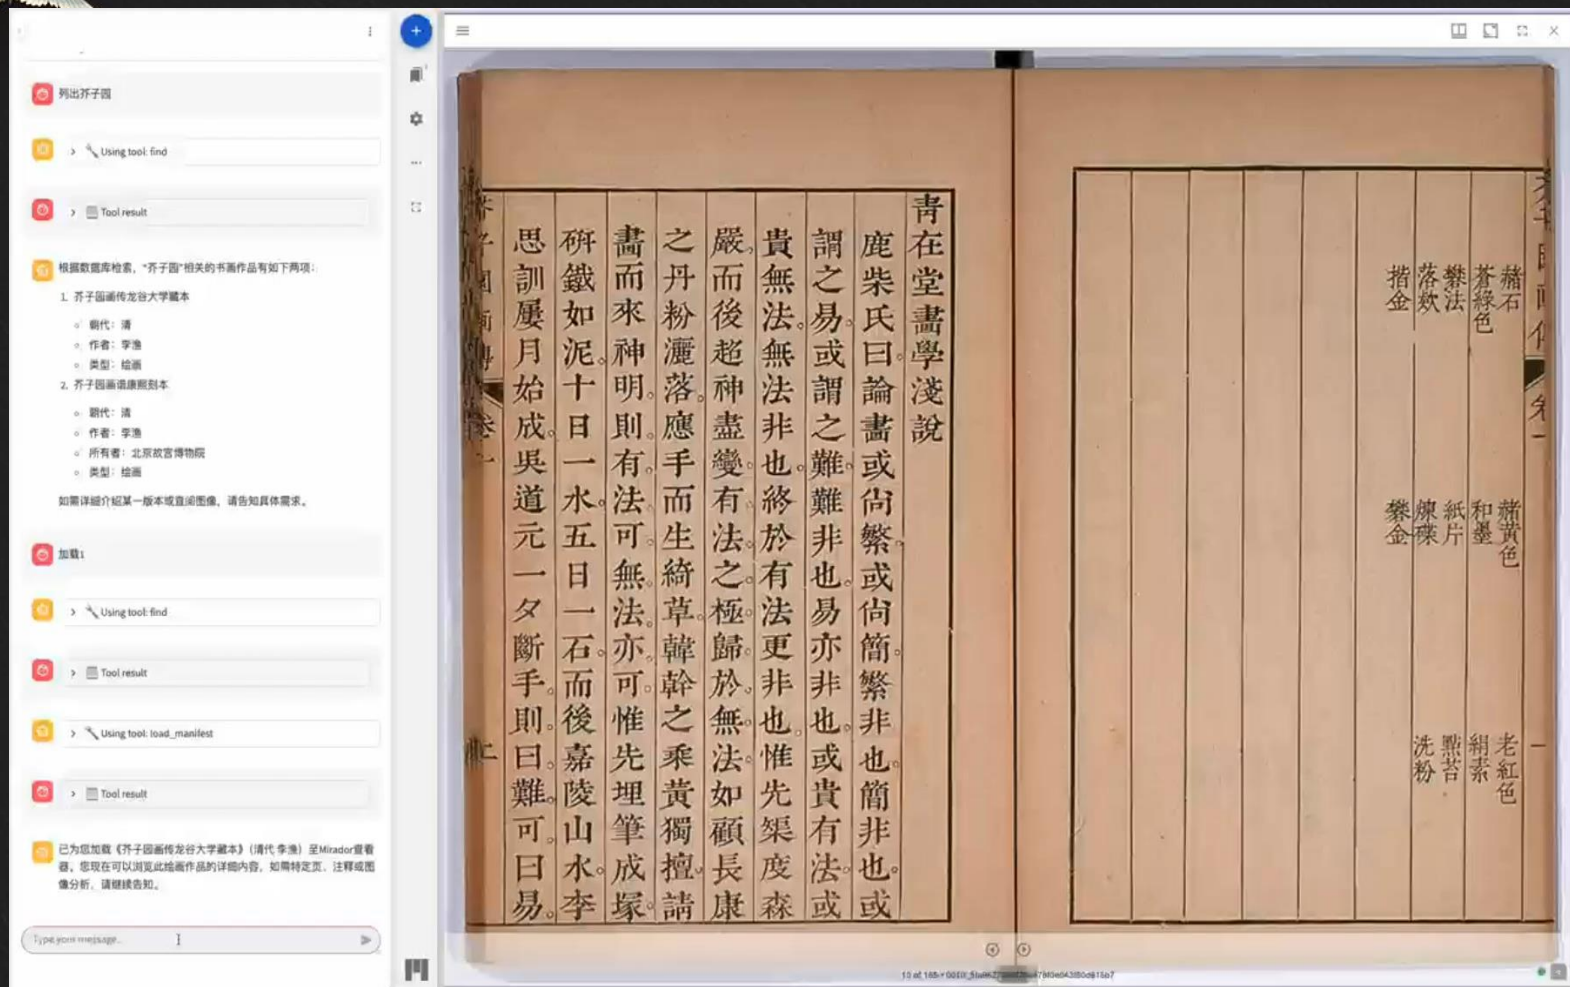 列出芥子园
Using tool: find
Tool result
根据数据库检索，“芥子园”相关的书画作品有如下两项：
1. 芥子园画传龙谷大学藏本
朝代：清
作者：李渔
类型：绘画
2. 芥子园画谱康熙刻本
朝代：清
作者：李渔
所有者：北京故宫博物院
类型：绘画
如需详细介绍某一版本或查阅图像，请告知具体需求。
加载1
Using tool: find
Tool result
Using tool: load_manifest
Tool result
已为您加载《芥子园画传龙谷大学藏本》（清代 李渔）至Mirador查看
器。您现在可以浏览此绘画作品的详细内容，如需特定页、注释或图
像分析，请继续告知。
Type your message...
赭石
赭黃色
老紅色
蒼綠色
和墨
絹素
礬法
紙片
點苔
落款
煉碟
洗粉
揩金
礬金
卷一
一
青在堂畫學淺說
鹿柴氏曰。論畫或尙繁。或尙簡。繁非也。簡非也。或
謂之易。或謂之難。難非也。易亦非也。或貴有法。或
貴無法。無法非也。終於有法更非也。惟先榘度森
嚴。而後超神盡變。有法之極。歸於無法。如顧長康
之丹粉灑落。應手而生綺草。韓幹之乘黃獨擅。請
畫而來神明。則有法可。無法亦可。惟先埋筆成塚。
硏鐵如泥。十日一水。五日一石。而後嘉陵山水。李
思訓屢月始成。吳道元一夕斷手。則曰難可。曰易。
卷一
二
10 of 168